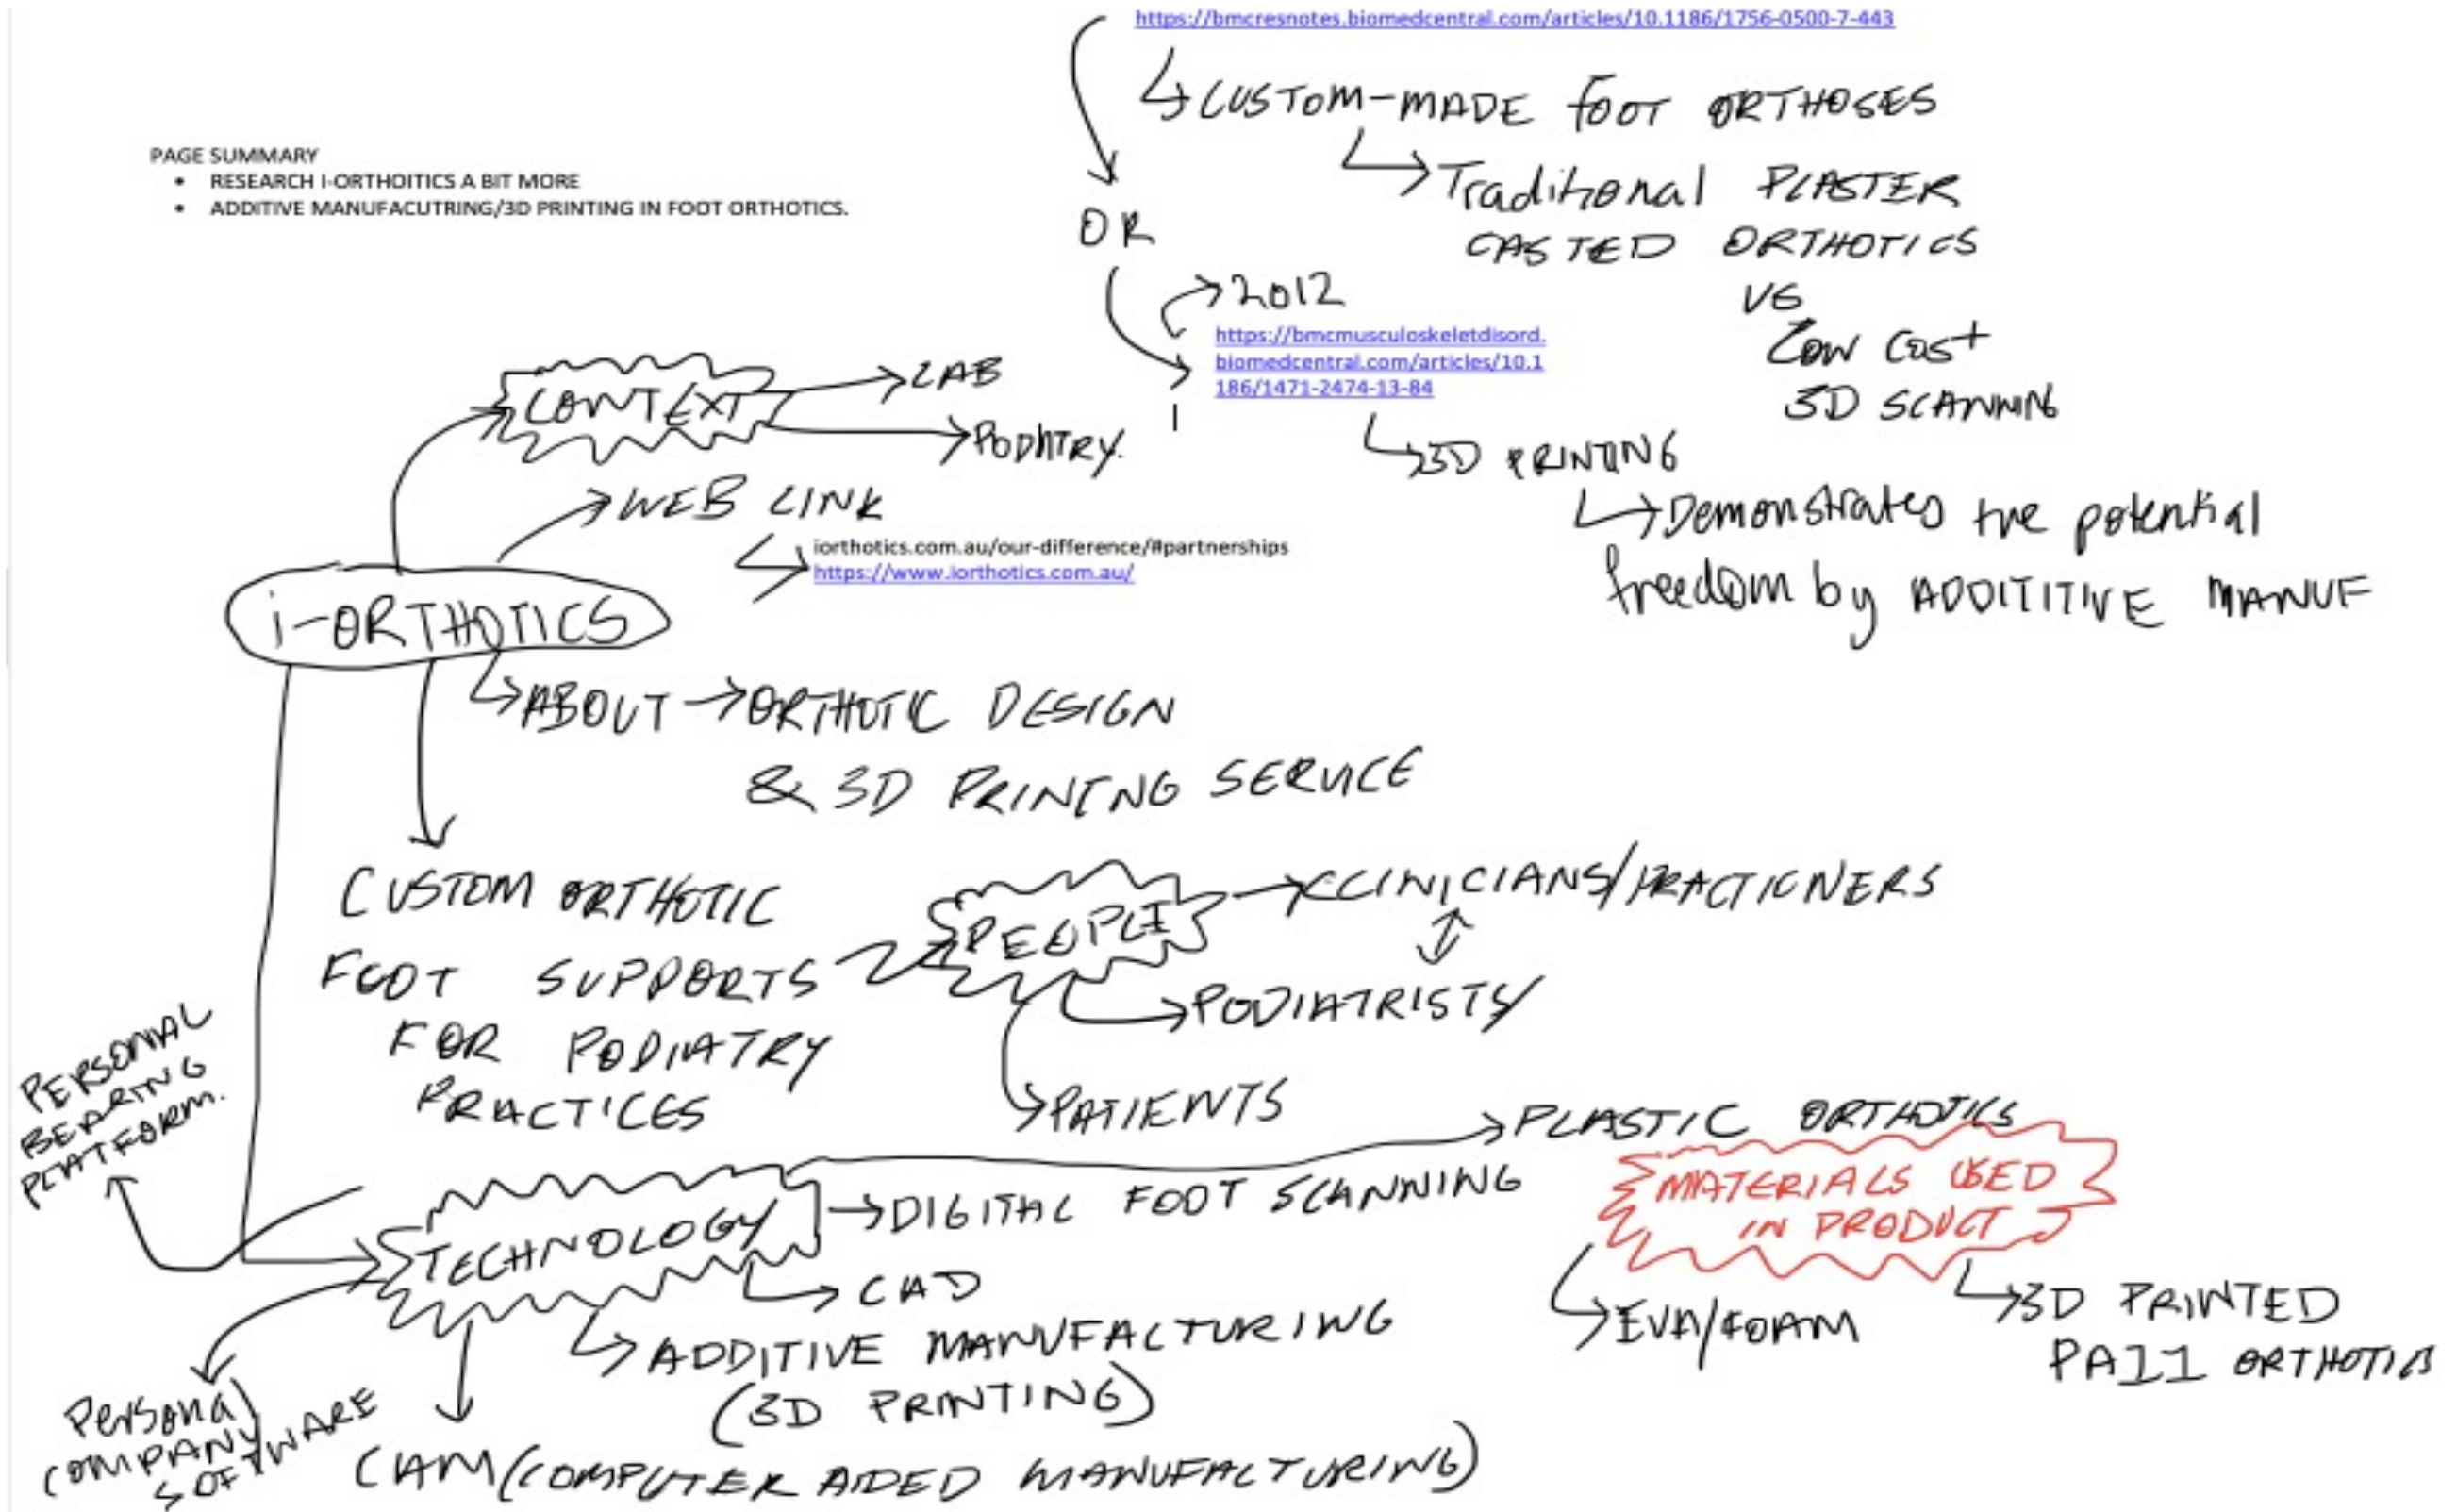 https://bmcresnotes.biomedcentral.com/articles/10.1186/1756-0500-7-443
CUSTOM-MADE FOOT ORTHOSES
Traditional PLASTER
CASTED ORTHOTICS
VS
Low Cost
3D SCANNING
PAGE SUMMARY
• RESEARCH I-ORTHOITICS A BIT MORE
• ADDITIVE MANUFACUTRING/3D PRINTING IN FOOT ORTHOTICS.
OR
2012
https://bmcmusculoskeletdisord.
biomedcentral.com/articles/10.1
186/1471-2474-13-84
3D PRINTING
Demonstrates the potential
freedom by ADDITITIVE MANUF
CONTEXT
LAB
PODIATRY.
WEB LINK
iorthotics.com.au/our-difference/#partnerships
https://www.iorthotics.com.au/
i-ORTHOTICS
ABOUT → ORTHOTIC DESIGN
& 3D PRINTNG SERVICE
CUSTOM ORTHOTIC
FOOT SUPPORTS
FOR PODIATRY
PRACTICES
PEOPLE
CLINICIANS/PRACTIONERS
PODIATRISTS
PATIENTS
PERSONAL
BEARING
PLATFORM.
TECHNOLOGY
PLASTIC ORTHOTICS
DIGITAL FOOT SCANNING
CAD
ADDITIVE MANUFACTURING
(3D PRINTING)
CAM (COMPUTER AIDED MANUFACTURING)
Personal
COMPANY
SOFTWARE
MATERIALS USED
IN PRODUCT
EVA/FOAM
3D PRINTED
PA11 ORTHOTICS